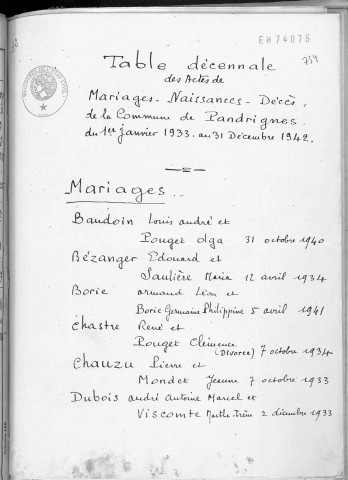 EH74075
754
Table décennale
des Actes de
Mariages - Naissances - Décès,
de la Commune de Pandrignes
du 1er janvier 1933. au 31 Décembre 1942.
Mariages..
Baudoin Louis andré et
Pouget olga 31 octobre 1940
Bézanger Edouard et
Saulière Maria 12 avril 1934
Borie armand Léon et
Borie Germaine Philippine 5 avril 1941
Chastre René et
Pouget Clémence
(Divorce) 7 octobre 1934
Chauzu Pierre et
Mondet Jeanne 7 octobre 1933
Dubois andré Antoine Marcel et
Viscomte Marthe Irène 2 décembre 1933